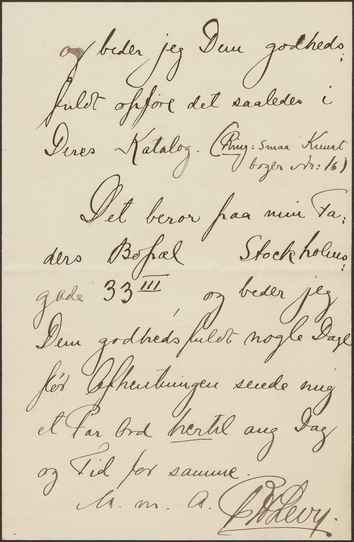 og beder jeg Dem godheds:
fuldt opføre det saaledes i
Deres Katalog. (Smaa Kunst
bøger Nr: 16)
Det beror paa min Fa:
ders Bopæl Stockholms:
gade 33 III, og beder jeg
Dem godhedsfuldt nogle Dage
før Afhentningen sende mig
et Par Ord hertil ang Dag
og Tid for samme.
M. m. A. Levy.